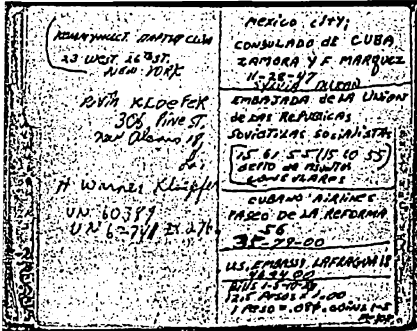 23 WEST 26TH ST.
NEW YORK
RUTH KLOEPFER
306 PINE ST
La.
H Warner Kloepfer
UN 60389
UN 6-
MEXICO CITY;
CONSULADO de CUBA
ZAMORA Y F MARQUEZ
11-28-47
SYLVIA DURAN
EMBAJADA de LA UNION
de LAS REPUBICAS
SOVIETIVAS SOCIALISTAS
15 61 55 (15 60 55)
DEPTO de ASUNTOS
CONSULARES
CUBANO AIRLINES
PASEO de LA REFORMA
56
35-79-00
U.S. EMBASSY LAFRAGUA 18
12.5 PESOS = 1.00
1 PESO = .08¢